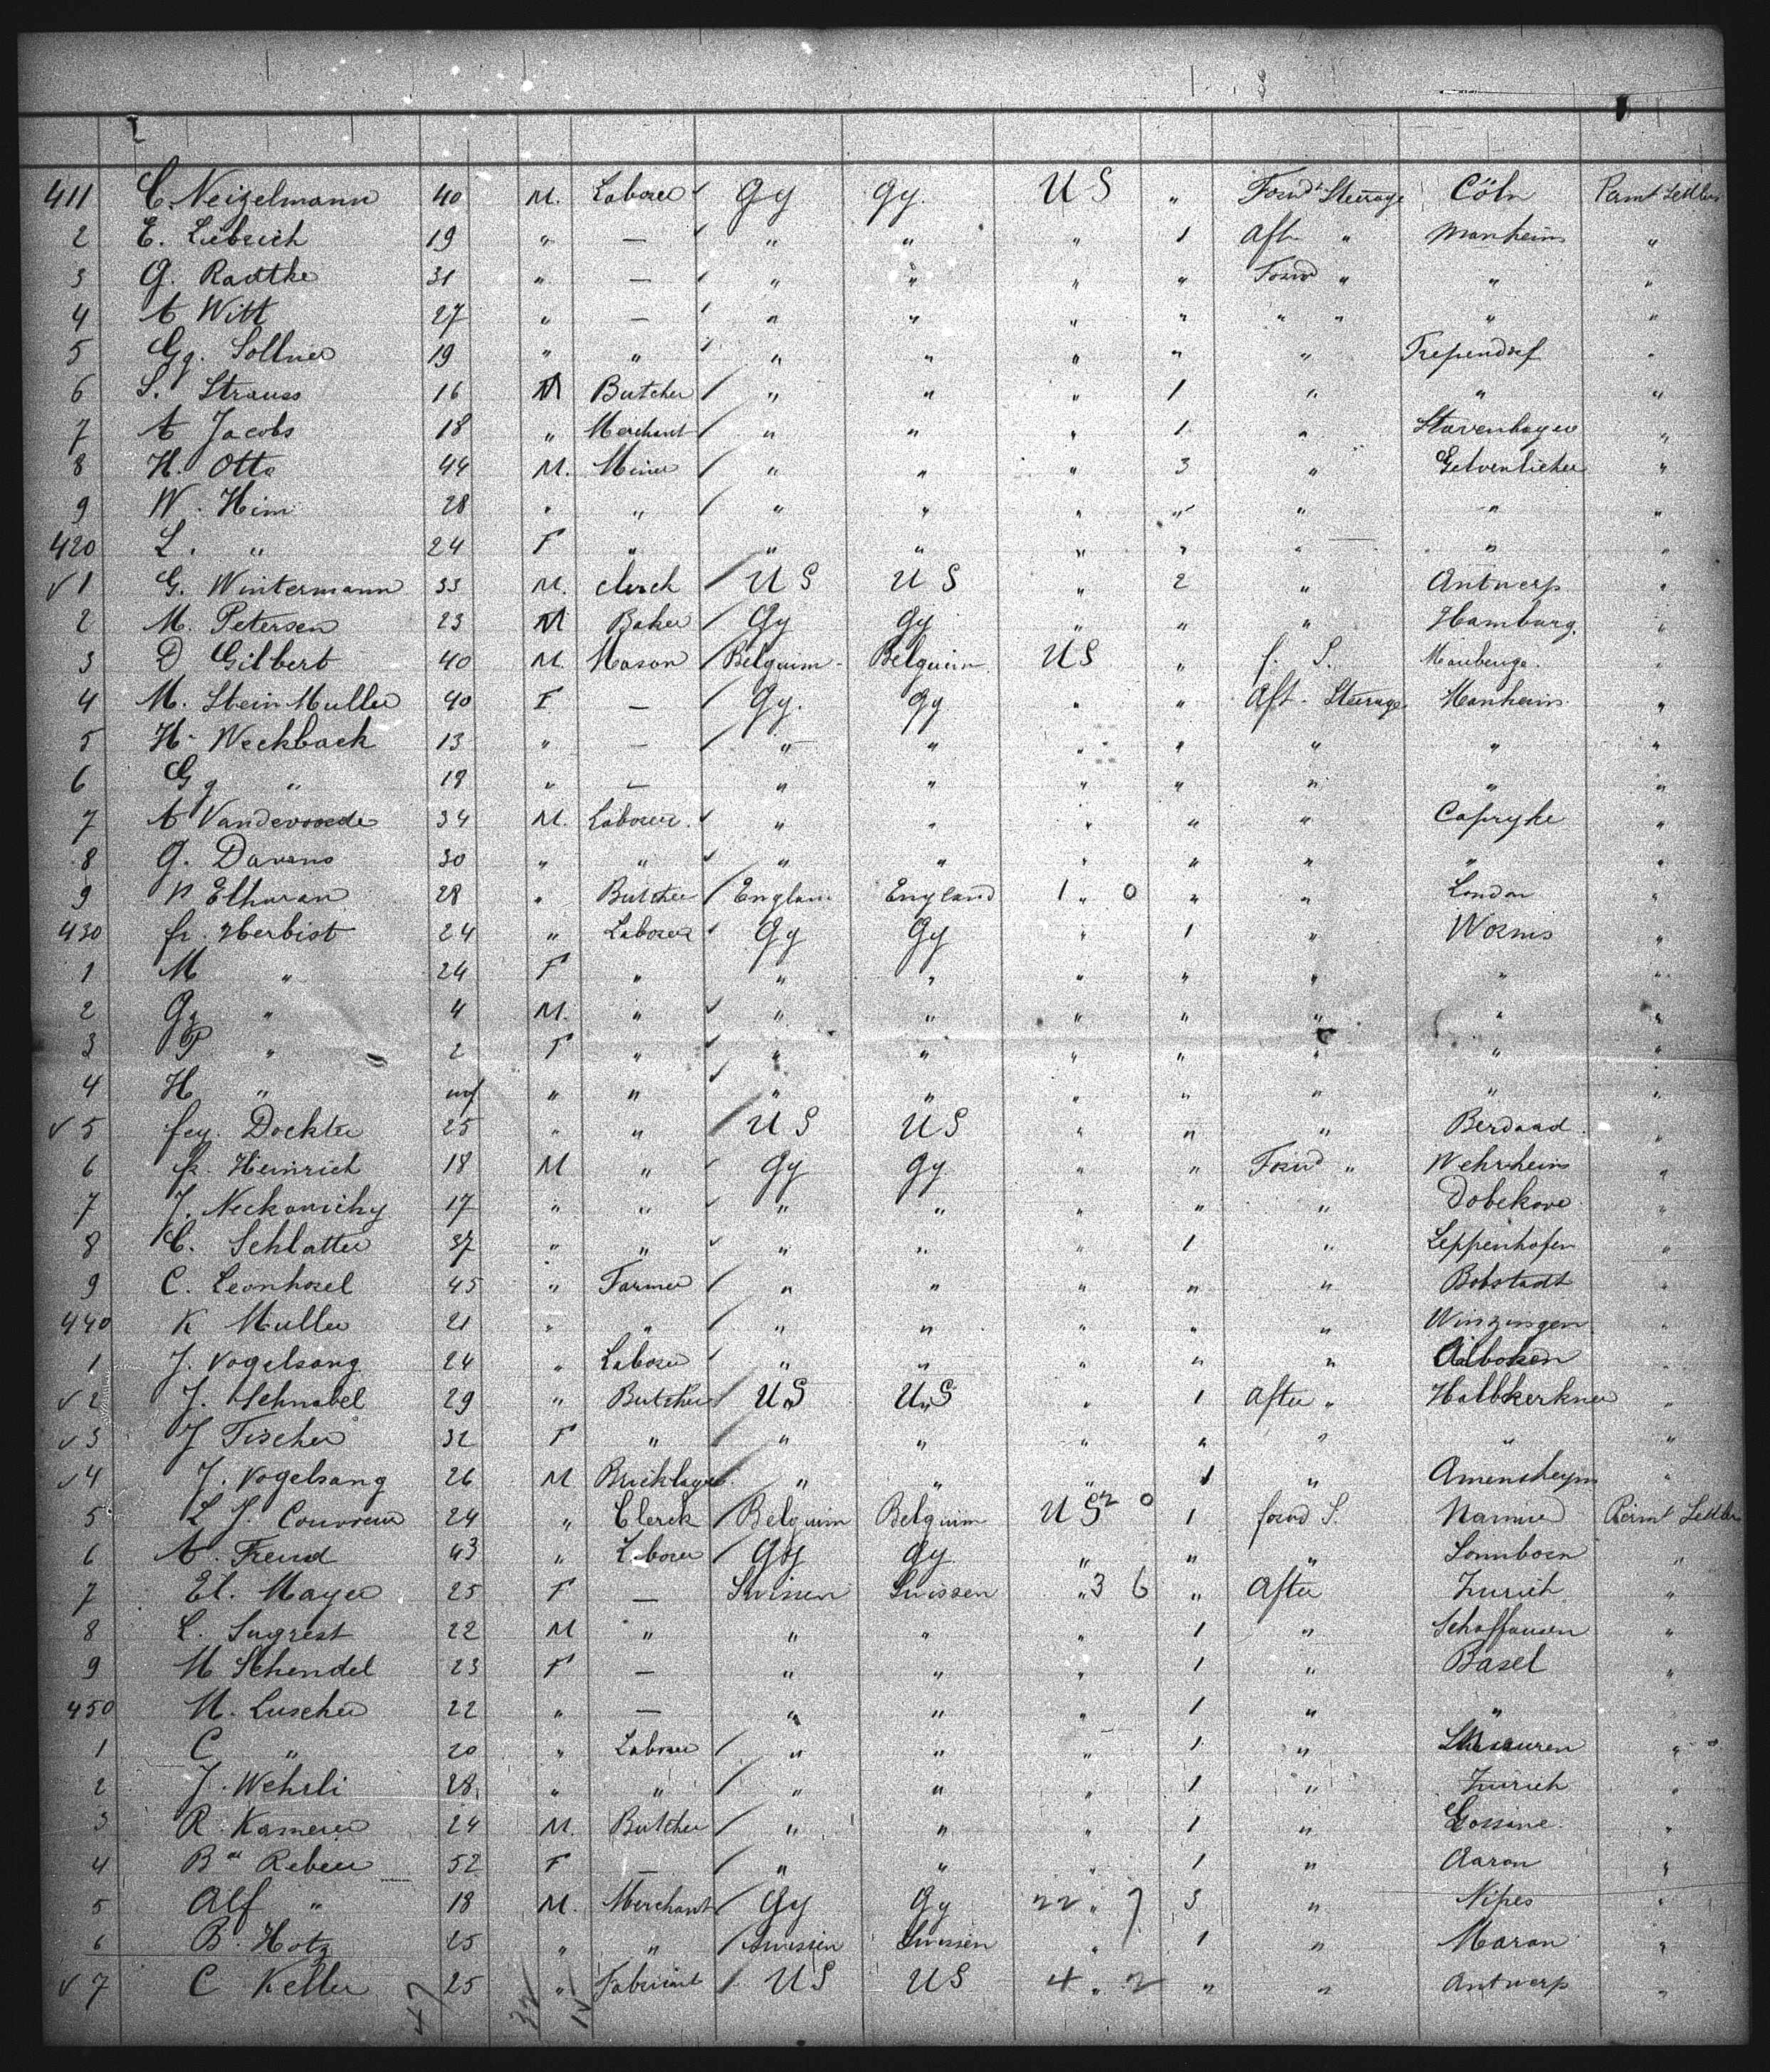 411 C. Neizelmann 40 M. Laborer Gy Gy. U S " Forwd Steerage Cöln Permt Settlers
2 E. Liebrich 19 " — " " " 1 Aft " Manheim "
3 G. Radtke 31 " — " " " " Forwd " " "
4 A Witt 27 " — " " " " " " " "
5 Gg. Sollner 19 " " " " " " " "
6 S. Strauss 16 M Butcher " " " 1 " " "
7 A Jacobs 18 " Merchant " " " 1 " Stavenhagen "
8 H. Otto 44 M. Miner " " " 3 " "
9 W. Heim 28 " " " " " " " " "
420 L. " 24 F " " " " " " " "
√ 1 G. Wintermann 33 M. clerck U S U S " 2 " Antwerp "
2 M. Petersen 23 M Baker Gy Gy " " " Hamburg. "
3 D Gilbert 40 M. Mason Belguim Belguim U S " f. S. Maubeuge. "
4 M. Stein Muller 40 F — Gy. Gy " " Aft. Steerage Manheim "
5 H. Weckback 13 " — " " " " " " "
6 Gg " 18 " — " " " " " " "
7 A Vandevoorde 34 M. Laborer. " " " " " Capryke "
8 G. Davans 30 " " " " " " " " "
9 28 " Butcher England England 1 " 0 " " London "
430 fr. Herbist 24 " Laborer Gy Gy " 1 " Worms "
1 M " 24 F " " " " " " " "
2 Gg " 4 M. " " " " " " " "
3 P. " 2 F " " " " " " " "
4 H " inf " " " " " " " " "
√ 5 Dockter 25 " " U S U S " " " "
6 fr. Heinrich 18 M " Gy Gy " " Forwd " Wehrheim "
7 J. 17 " " " " " " " Dobekove "
8 C. Schlatter 37 " " " " " 1 " Leppenhofen "
9 C. Leonhosel 45 " Farmer " " " " " Bobstadt "
440 K Muller 21 " " " " " " " Winzingen "
1 J. Vogelsang 24 " Laborer " " " " " "
√ 2 J. Schnabel 29 " Butcher U S U S " 1 After " "
√ 3 J Fischer 32 F " " " " " " " "
√ 4 J. Vogelsang 26 M Bricklayer " " " 1 " "
5 L J. Couvreur 24 " Clerck Belguim Belguim U S 2 0 1 forwd S. Namur Permt Settlers
6 A. Freud 43 " Laborer Gy Gy " " " Sonnborn "
7 El. Mayer 25 F — Swissen Swissen " 3 6 " After Zurich "
8 L. 22 M " " " " 1 " Schaffausen "
9 M Schendel 23 F — " " " 1 " Basel "
450 M. Luscher 22 " — " " " 1 " " "
1 C " 20 " Laborer " " " 1 " "
2 J. Wehrli 28 " " " " " 1 " Zurich "
3 R. Kamerer 24 M. Butcher " " " 1 " Gossine "
4 Rebeer 52 F — " " " 1 " Aaron "
5 Alf " 18 M. Merchant Gy Gy 22 " 7 3 " Nipes "
6 B. Hotz 25 " " Swissen Swissen " 1 " Maran "
√ 7 C Keller 25 " U S U S 4 " 2 " " Antwerp "
47 32